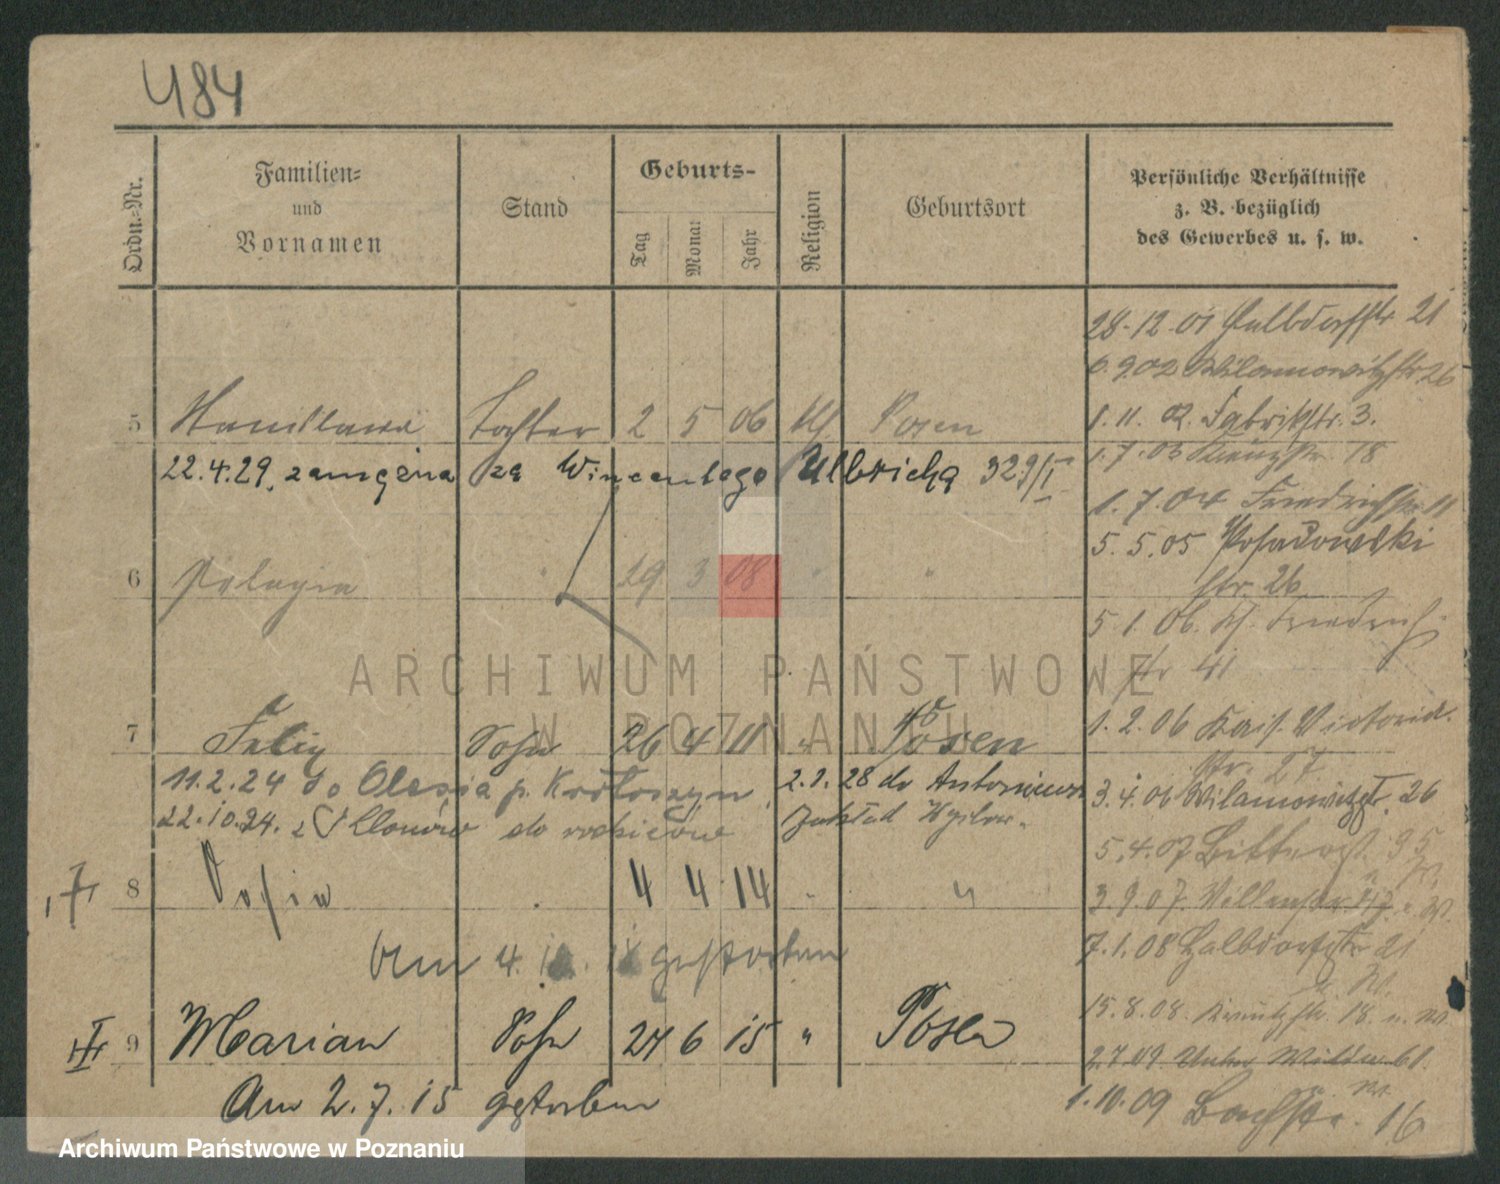 484
Ordn.-Nr.
Familien-
und
Vornamen
Stand
Geburts-
Tag
Monat
Jahr
Religion
Geburtsort
Persönliche Verhältnisse
z. B. bezüglich
des Gewerbes u. s. w.
28.12.01 Halbdorfstr 21
6.9.02 Wilamowitzstr 26
5 Tochter 2 5 06 kf. Posen
1.11.02 Fabrikstr. 3.
22.4.29. zamężna za Wincentego Ulbricha 329/I
1.7.03 Kreuzstr. 18
1.7.04 Friedrichstr 11
5.5.05 Posadowski
str. 26
6 Pelagia " 29 3 08 " "
5.1.06. Kl. Friedrich
str 41
7 Felix Sohn 26 4 11 " Posen
1.2.06 Kais. Victoria
str. 27
11.2.24 do Olesia p. Krotoszyn
2.2.28 do Antoniewa
zakład Wychow.
3.4.06 Wilamowitzstr. 26
22.10.24. z do rodziców
5.4.07 35
8 Sofia . 4 4 14 " "
3.9.07.
am 4. gestorben
7.1.08 Halbdorfstr 21
u. W.
15.8.08. Kreuzstr. 18 u. W
9 Marian Sohn 24 6 15 " Posen
2.7.09. Unter Wilda 61.
Am 2.7.15 gestorben
1.10.09 Bachstr. 16
ARCHIWUM PAŃSTWOWE
W POZNANIU
Archiwum Państwowe w Poznaniu